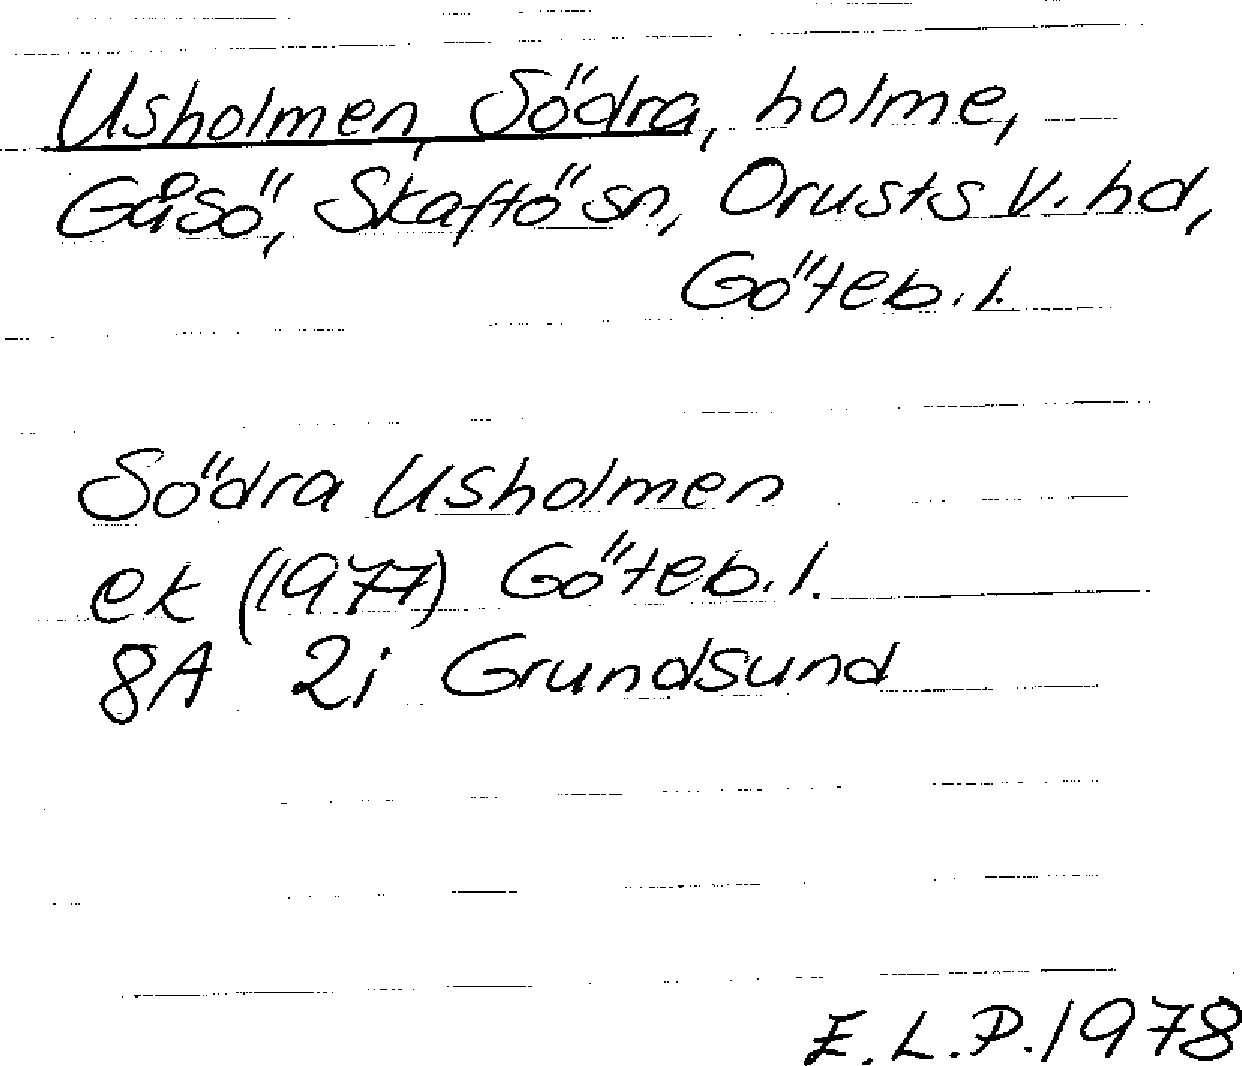 Usholmen, Södra, holme,
Gåsö, Skaftö sn, Orusts V. hd,
Göteb. l.
Södra Usholmen
ek (1977) Göteb. l.
8A 2i Grundsund
E.L.P. 1978